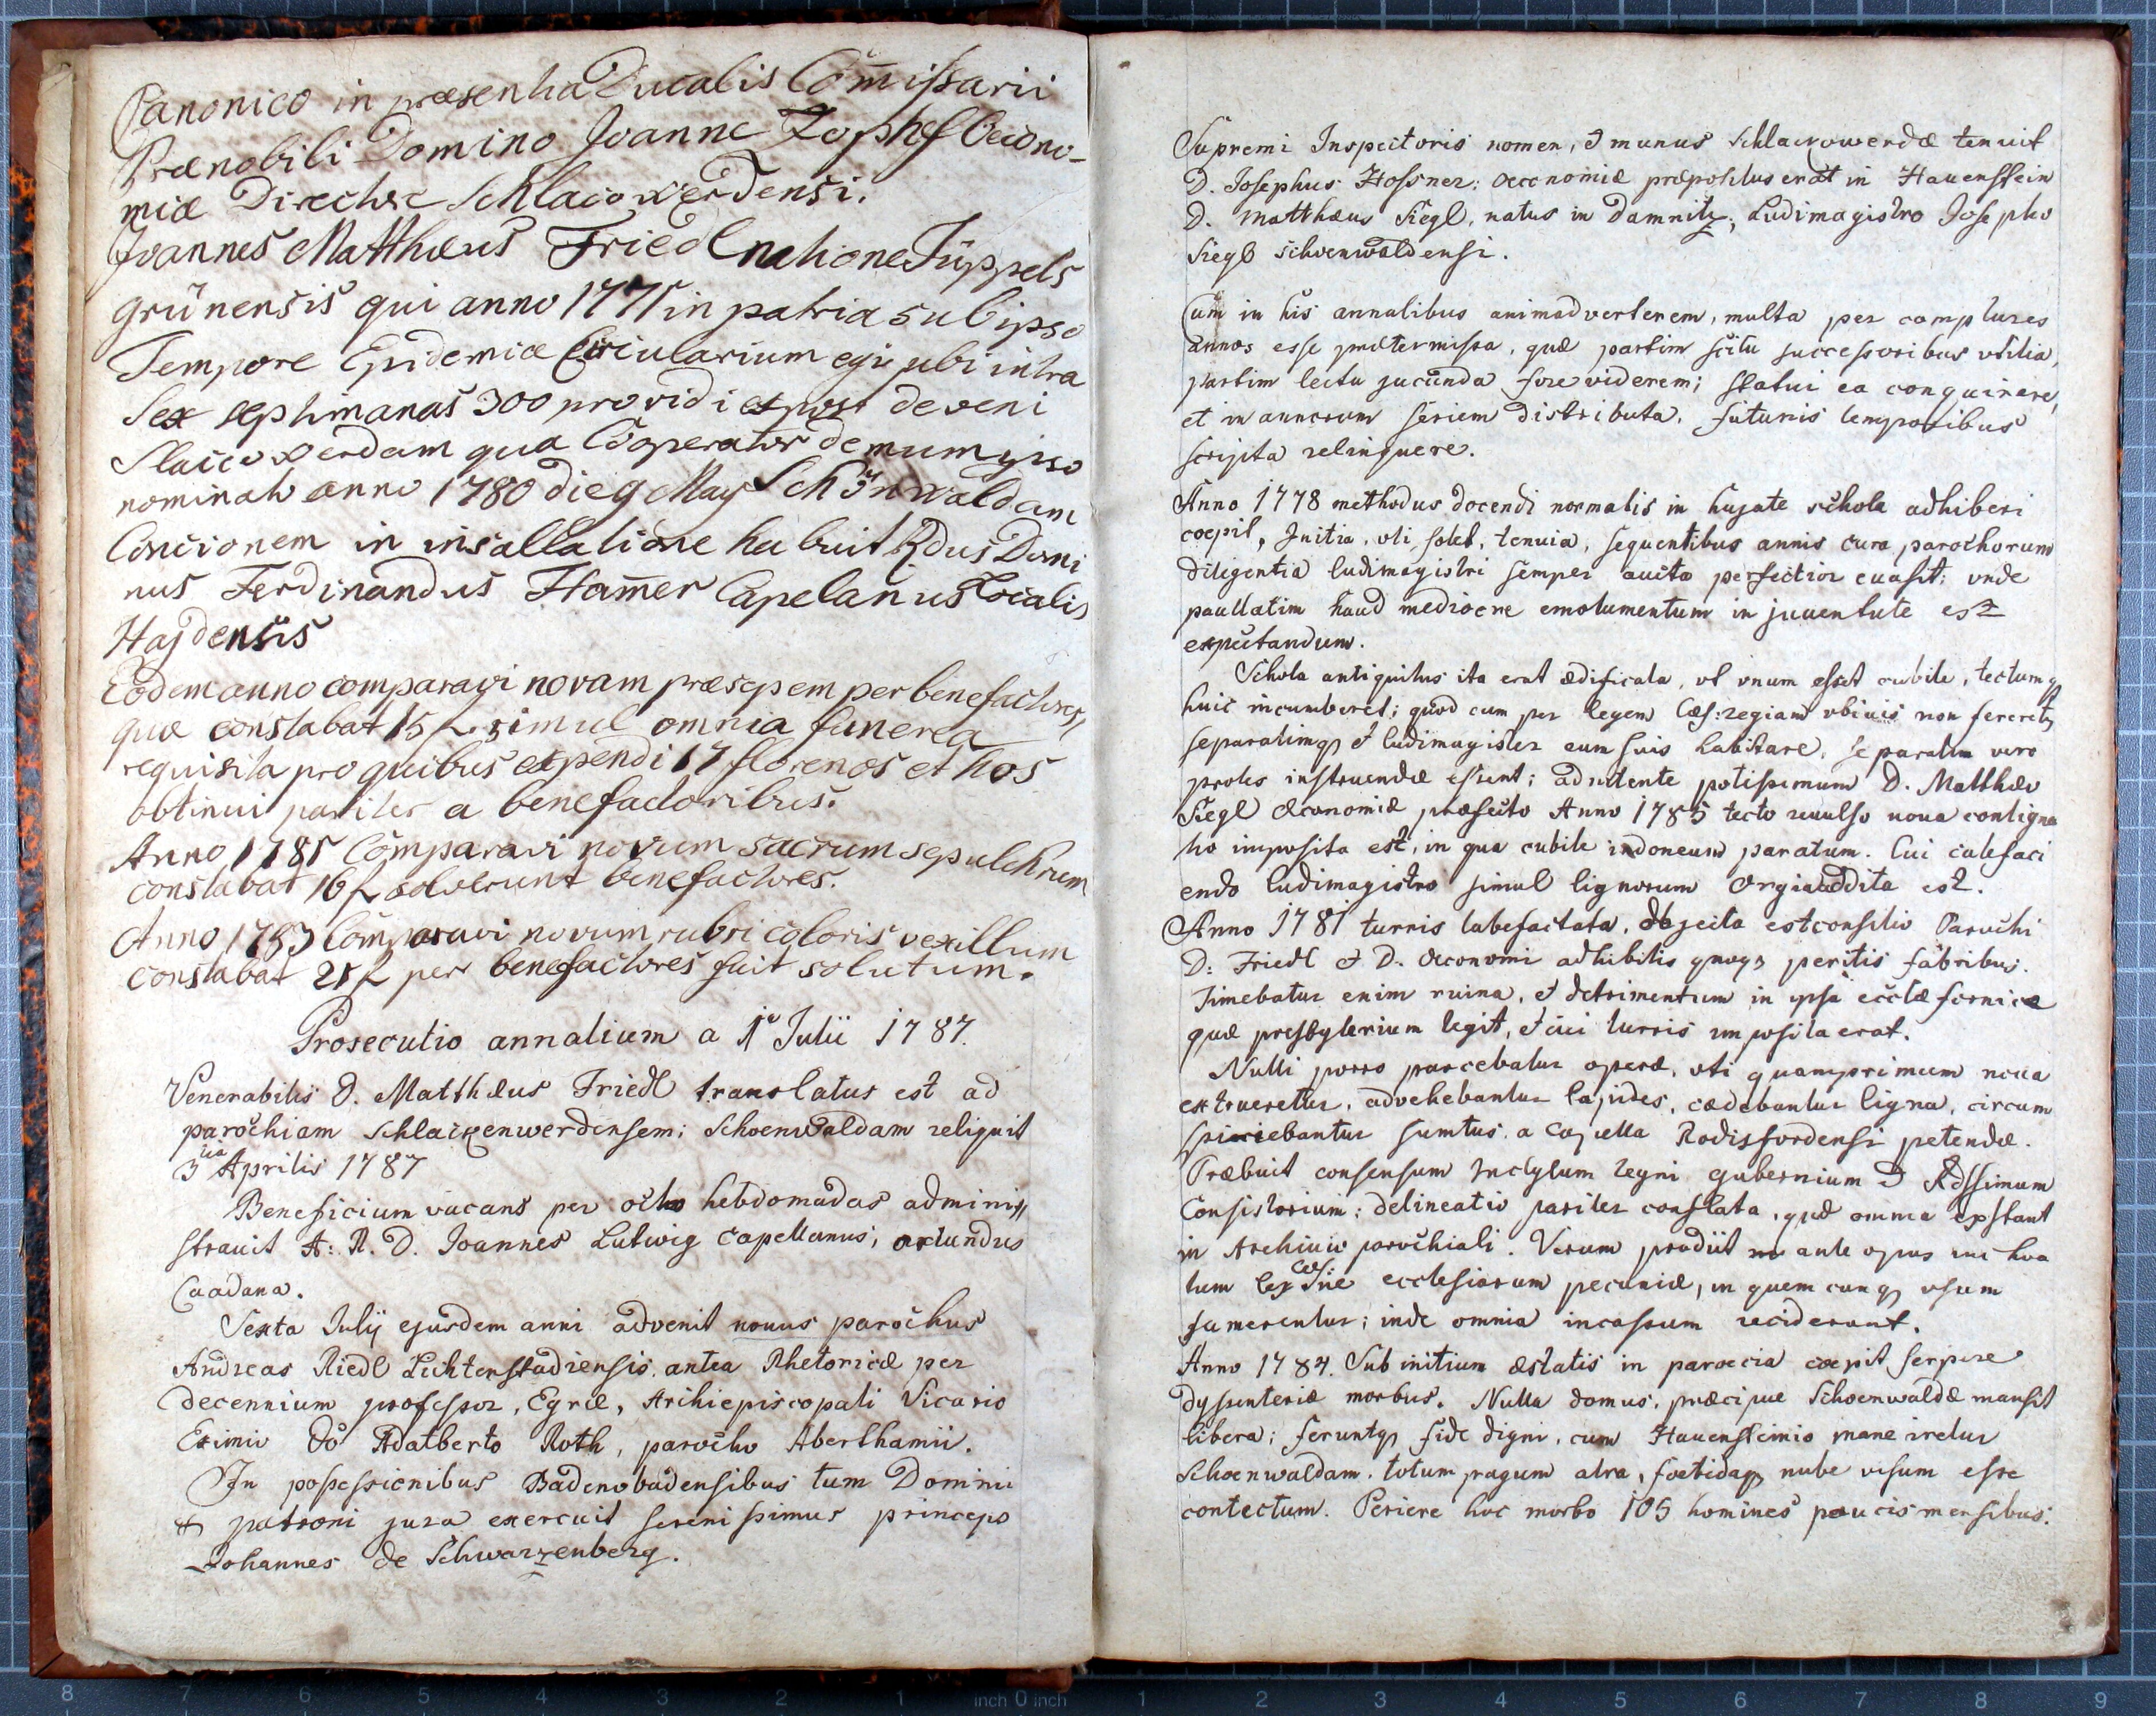 Canonico in præsentia Ducalis Com̄issarii
Prænobili Domino Joanne Zophel Oecono-
miæ Directore Schlacowerdensi.
Joannes Matthæus Friedl natione Tüppels
grünensis qui anno 1771 in patria sub ipso
Tempore Epidemiæ Circularium egi ubi intra
Sex septimanas 300 providi et post deveni
Slaccowerdam qua Cooperator demum
nominatus anno 1780 die 9 May Schönwaldam
Concionem in insallatione habuit Rdus Domi
nus Ferdinandus Ham̄er Capelanus Localis
Hajdensis
Eodem anno comparavi novam præsepem per benefactores,
quæ constabat 15 f. simul omnia funerea
requisita pro quibus expendi 17 florenos et hos
obtinui pariter a benefactoribus.
Anno 1785 Comparavi novum sacrum sepulchrum
constabat 16 f solverunt benefactores.
Anno 1783 Comparavi novum rubri coloris vexillum
constabat 21 f per benefactores fuit solutum.
Prosecutio annalium a 1o Julii 1787.
Venerabilis D. Matthæus Friedl translatus est ad
parochiam Schlackenwerdensem; Schoenwaldam reliquit
3tia Aprilis 1787
Beneficium vacans per octo hebdomadas adminis
stravit A: R. D. Joannes Lutwig Capellanus, oriundus
Caadana.
Sexta Julij ejusdem anni advenit nouus parochus
Andreas Riedl Lichtenstadiensis antea Rhetoricæ per
decennium professor, Egræ, Archiepiscopali Vicario
Eximio Do Adalberto Roth, parocho Aberthamii.
In possessionibus Badenobadensibus tum Domini
& patroni jura exercuit serenissimus princeps
Johannes de Schwarzenberg.
Supremi Inspectoris nomen, & munus Schlackowerdæ tenuit
D. Josephus Hossner: œconomiæ præpositus erat in Hauenstein
D. Matthæus Siegl, natus in Damnitz, Ludimagistro Josepho
Siegl Schoenwaldensi.
Cum in his annalibus animadverterem, multa per complures
annos esse prætermissa, quæ partim scitu successoribus utilia,
partim lectu jucunda fore viderem; statui ea conquirere,
et in annorum seriem distributa, futuris temporibus
scripta relinquere.
Anno 1778 methodus docendi normalis in hujate schola adhiberi
coepit, Initia, uti solet, tenuia, sequentibus annis cura parochorum
diligentia ludimagistri semper aucta perfectior euasit; unde
paullatim haud mediocre emolumentum in juuentute est
expectandum.
Schola antiquitus ita erat ædificata, ut unum esset cubile, tectumq
huic incumberet; quod cum per legem Cæs: regiam ubiuis non ferretur,
separatimq & ludimagister cum suis habitare, separatim vero
proles instruendæ essent; adnitente potissimum D. Matthæo
Siegl œconomiæ præfecto Anno 1785 tecto reuulso noua contigna
tio imposita est, in qua cubile indoneum paratum. Cui calefaci
endo ludimagistro simul lignorum Orgia addita est.
Anno 1781 turris labefactata, dejecta est consilio Parochi
D: Friedl & D. Oeconomi adhibitis quoq peritis fabribus.
Timebatur enim ruina, & detrimentum in ipsa ecctæ fornice
quæ presbyterium tegit, & cui turris imposita erat.
Nulli porro parcebatur operæ, uti quamprimum noua
extrueretur, advehebantur lapides, cædebantur ligna, circum
spiciebantur sumtus a Capella Rodisfordensi petendæ.
Præbuit consensum Inclytum regni gubernium & Rdssimum
Consistorium; delineatio pariter conflata, quæ omnia exstant
in Archiuio parochiali. Verum prodiit ante opus inchoa
tum lex Cæs: ne ecclesiarum pecuniæ, in quem cunq usum
sumerentur; inde omnia incassum reciderunt.
Anno 1784. Sub initium æstatis in paroecia coepit serpere
dyssenteriæ morbus. Nulla domus, præcipue Schoenwaldæ mansit
libera; feruntq fide digni, cum Hauensteinio mane iretur
Schoenwaldam, totum pagum atra, foetidaq nube visum esse
contectum. Periere hoc morbo 105 homines paucis mensibus.